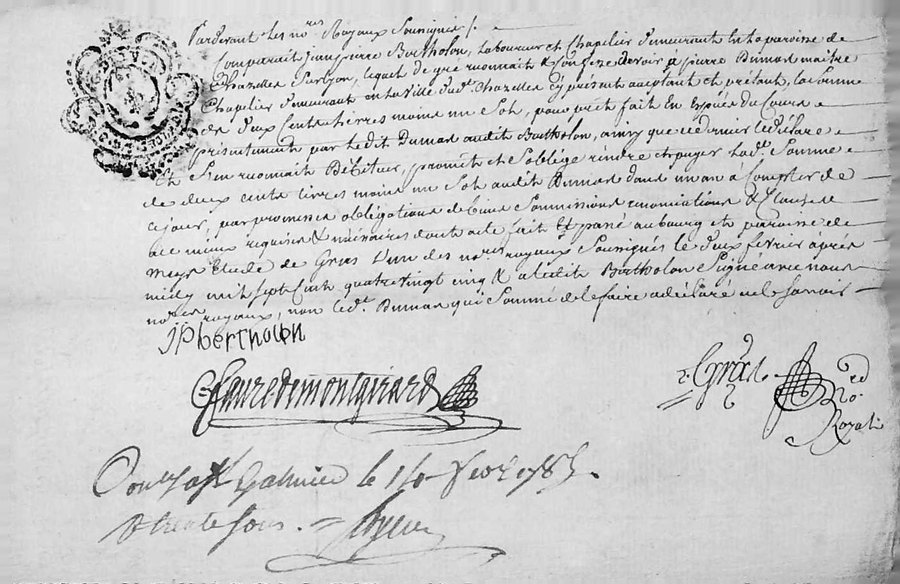 Pardevant les no.res Royaux Soussignés /.
Comparait Jean pierre Bertholon, Laboureur et Chapelier demeurant en la paroisse de
Chazelles sur lyon, lequel de gré reconnait & confesse devoir à pierre Dumas maitre
Chapelier demeurant en la ville dud.t Chazelles cy présent acceptant et prétant, la Somme
de deux Cents livres moins un Sol, pour prêt fait En Espèces du Cours
présentement par ledit Dumas audit Bertholon, ainsy que ce dernier le déclare
Et S'en reconnait Débiteur, promet et S'oblége rendre et payer lad.e Somme
de deux cents livres moins un Sol audit Dumas dans un an a Compter de
cejour, par promesses obligations de biens Soumissions renonciations & Clauses
ace mieux requises & nécéssaires dont acte fait Et passé au bourg et paroisse de
Meys Etude de Gras L'un des no.res royaux Soussignés le deux février apres
midy mil sept Cent quatre vingt cinq & a ledit Bertholon Signé avec nous
no.res royaux, non led.t Dumas qui Sommé de le faire a déclaré ne le Savoir
jp berthoLon
Faure de montgirard
Gras no. Royal
Con.lé a S.t Galmier le 14 fevr 1785.
R trente Sous.